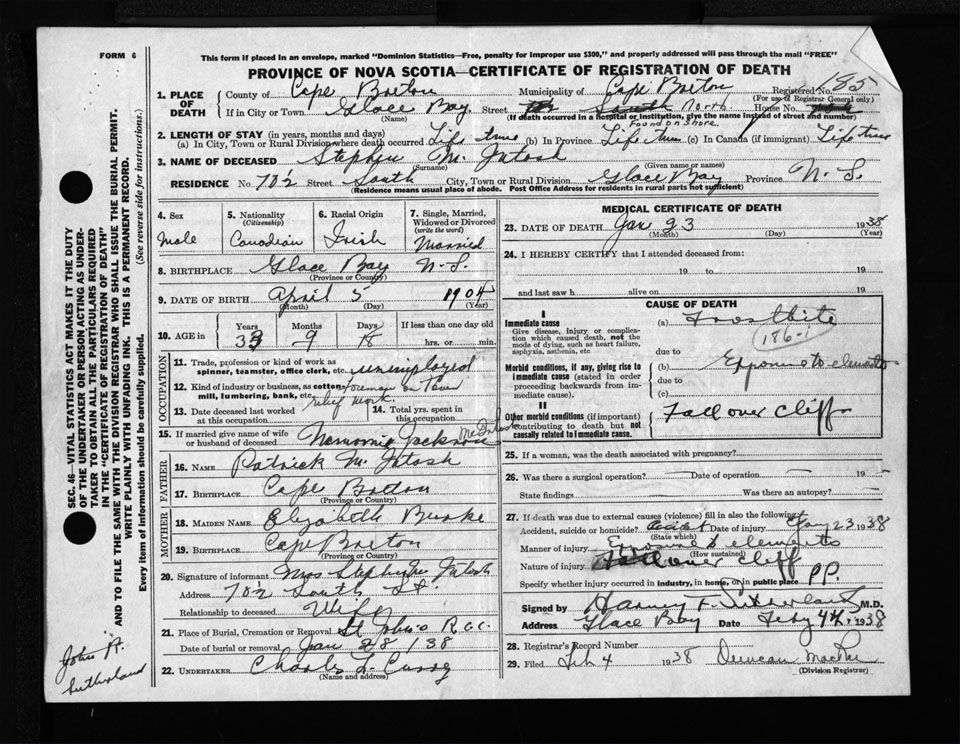 FORM 6
This form if placed in an envelope, marked "Dominion Statistics—Free, penalty for improper use $300," and properly addressed will pass through the mail "FREE"
PROVINCE OF NOVA SCOTIA—CERTIFICATE OF REGISTRATION OF DEATH
185
1. PLACE OF DEATH
County of Cape Breton Municipality of Cape Breton Registered No.
(For use of Registrar General only)
If in City or Town Glace Bay Street South North House No.
(Name) (If death occurred in a hospital or institution, give the name instead of street and number)
Found on shore
2. LENGTH OF STAY (in years, months and days)
(a) In City, Town or Rural Division where death occurred Life time (b) In Province Life time (c) In Canada (if immigrant) Life time
3. NAME OF DECEASED Stephen McIntosh
(Surname) (Given name or names)
RESIDENCE No. 70½ Street South City, Town or Rural Division Glace Bay Province N. S.
(Residence means usual place of abode. Post Office Address for residents in rural parts not sufficient)
4. Sex Male
5. Nationality (Citizenship) Canadian
6. Racial Origin Irish
7. Single, Married, Widowed or Divorced (write the word) Married
8. BIRTHPLACE Glace Bay N. S.
(Province or Country)
9. DATE OF BIRTH April 5 1904
(Month) (Day) (Year)
10. AGE in Years 33 Months 9 Days 18 If less than one day old hrs. or min.
OCCUPATION
11. Trade, profession or kind of work as spinner, teamster, office clerk, etc. unemployed
12. Kind of industry or business, as cotton mill, lumbering, bank, etc. foreman on Town relief work.
13. Date deceased last worked at this occupation
14. Total yrs. spent in this occupation
15. If married give name of wife or husband of deceased Jackson McIntosh
FATHER
16. NAME Patrick McIntosh
17. BIRTHPLACE Cape Breton
(Province or Country)
MOTHER
18. MAIDEN NAME Elizabeth Burke
19. BIRTHPLACE Cape Breton
(Province or Country)
20. Signature of informant Mrs Stephen McIntosh
Address 70½ South St.
Relationship to deceased Wife
21. Place of Burial, Cremation or Removal St John's R.C.C.
Date of burial or removal Jan 28/38
22. UNDERTAKER Charles J. Curry
(Name and address)
MEDICAL CERTIFICATE OF DEATH
23. DATE OF DEATH Jan 23 1938
(Month) (Day) (Year)
24. I HEREBY CERTIFY that I attended deceased from:
19 to 19
and last saw h alive on 19
CAUSE OF DEATH
I
Immediate cause
Give disease, injury or complication which caused death, not the mode of dying, such as heart failure, asphyxia, asthenia, etc
(a) Frostbite
186-1
due to
Morbid conditions, if any, giving rise to immediate cause (stated in order proceeding backwards from immediate cause).
(b) Exposure to elements
due to
(c)
II
Other morbid conditions (if important) contributing to death but not causally related to immediate cause.
Fall over cliff
25. If a woman, was the death associated with pregnancy?
26. Was there a surgical operation? — Date of operation — 19
State findings Was there an autopsy? —
27. If death was due to external causes (violence) fill in also the following:
Accident, suicide or homicide? Accident Date of injury Jan 23 1938
(State which)
Manner of injury Exposure to elements
(How sustained)
Nature of injury Fall over cliff
Specify whether injury occurred in industry, in home, or in public place P.P.
Signed by Harvey F. Sutherland M.D.
Address Glace Bay Date Feby 4th 1938
28. Registrar's Record Number
29. Filed Feb 4 1938 Duncan MacRae
(Division Registrar)
SEC. 46—VITAL STATISTICS ACT MAKES IT THE DUTY OF THE UNDERTAKER OR PERSON ACTING AS UNDERTAKER TO OBTAIN ALL THE PARTICULARS REQUIRED IN THE "CERTIFICATE OF REGISTRATION OF DEATH"
AND TO FILE THE SAME WITH THE DIVISION REGISTRAR WHO SHALL ISSUE THE BURIAL PERMIT.
WRITE PLAINLY WITH UNFADING INK. THIS IS A PERMANENT RECORD.
Every item of information should be carefully supplied. (See reverse side for instructions.)
John R. Sutherland